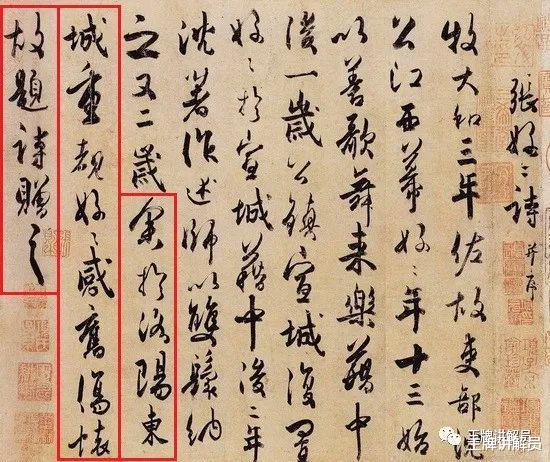 張好〻詩 并序
牧大和三年佐故吏部沈
公江西幕好〻年十三始
以善歌舞来樂籍中
後一歲公鎮宣城復置
好〻於宣城籍中後二年
沈著作述師以雙鬟納
之又二歲余於洛陽東
城重覩好〻感舊傷懷
故題詩贈之
王牌讲解员
王牌讲解员